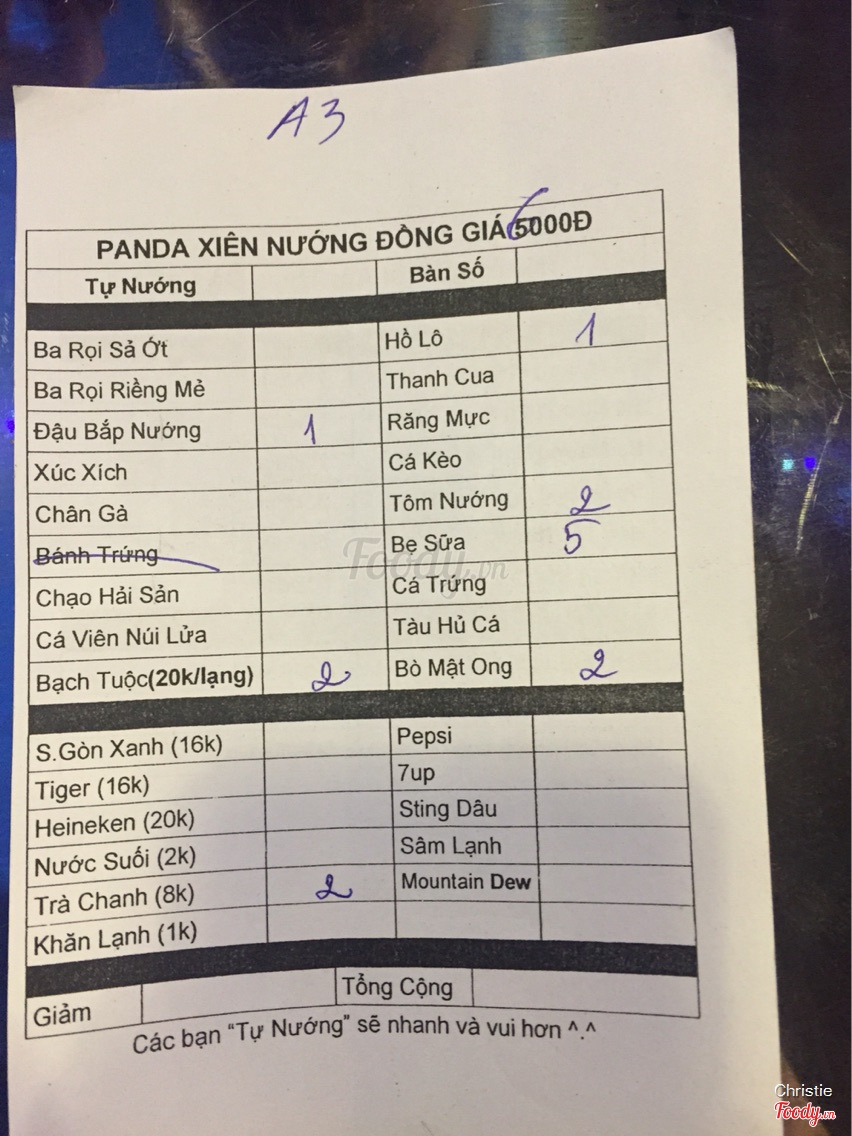 A3
PANDA XIÊN NƯỚNG ĐỒNG GIÁ 65000Đ
Tự Nướng Bàn Số
Ba Rọi Sả Ớt Hồ Lô 1
Ba Rọi Riềng Mẻ Thanh Cua
Đậu Bắp Nướng 1 Răng Mực
Xúc Xích Cá Kèo
Chân Gà Tôm Nướng 2
Bánh Trứng Bẹ Sữa 5
Chạo Hải Sản Cá Trứng
Cá Viên Núi Lửa Tàu Hủ Cá
Bạch Tuộc(20k/lạng) 2 Bò Mật Ong 2
S.Gòn Xanh (16k) Pepsi
Tiger (16k) 7up
Heineken (20k) Sting Dâu
Nước Suối (2k) Sâm Lạnh
Trà Chanh (8k) 2 Mountain Dew
Khăn Lạnh (1k)
Giảm Tổng Cộng
Các bạn “Tự Nướng” sẽ nhanh và vui hơn ^.^
Foody.vn
Christie
Foody.vn